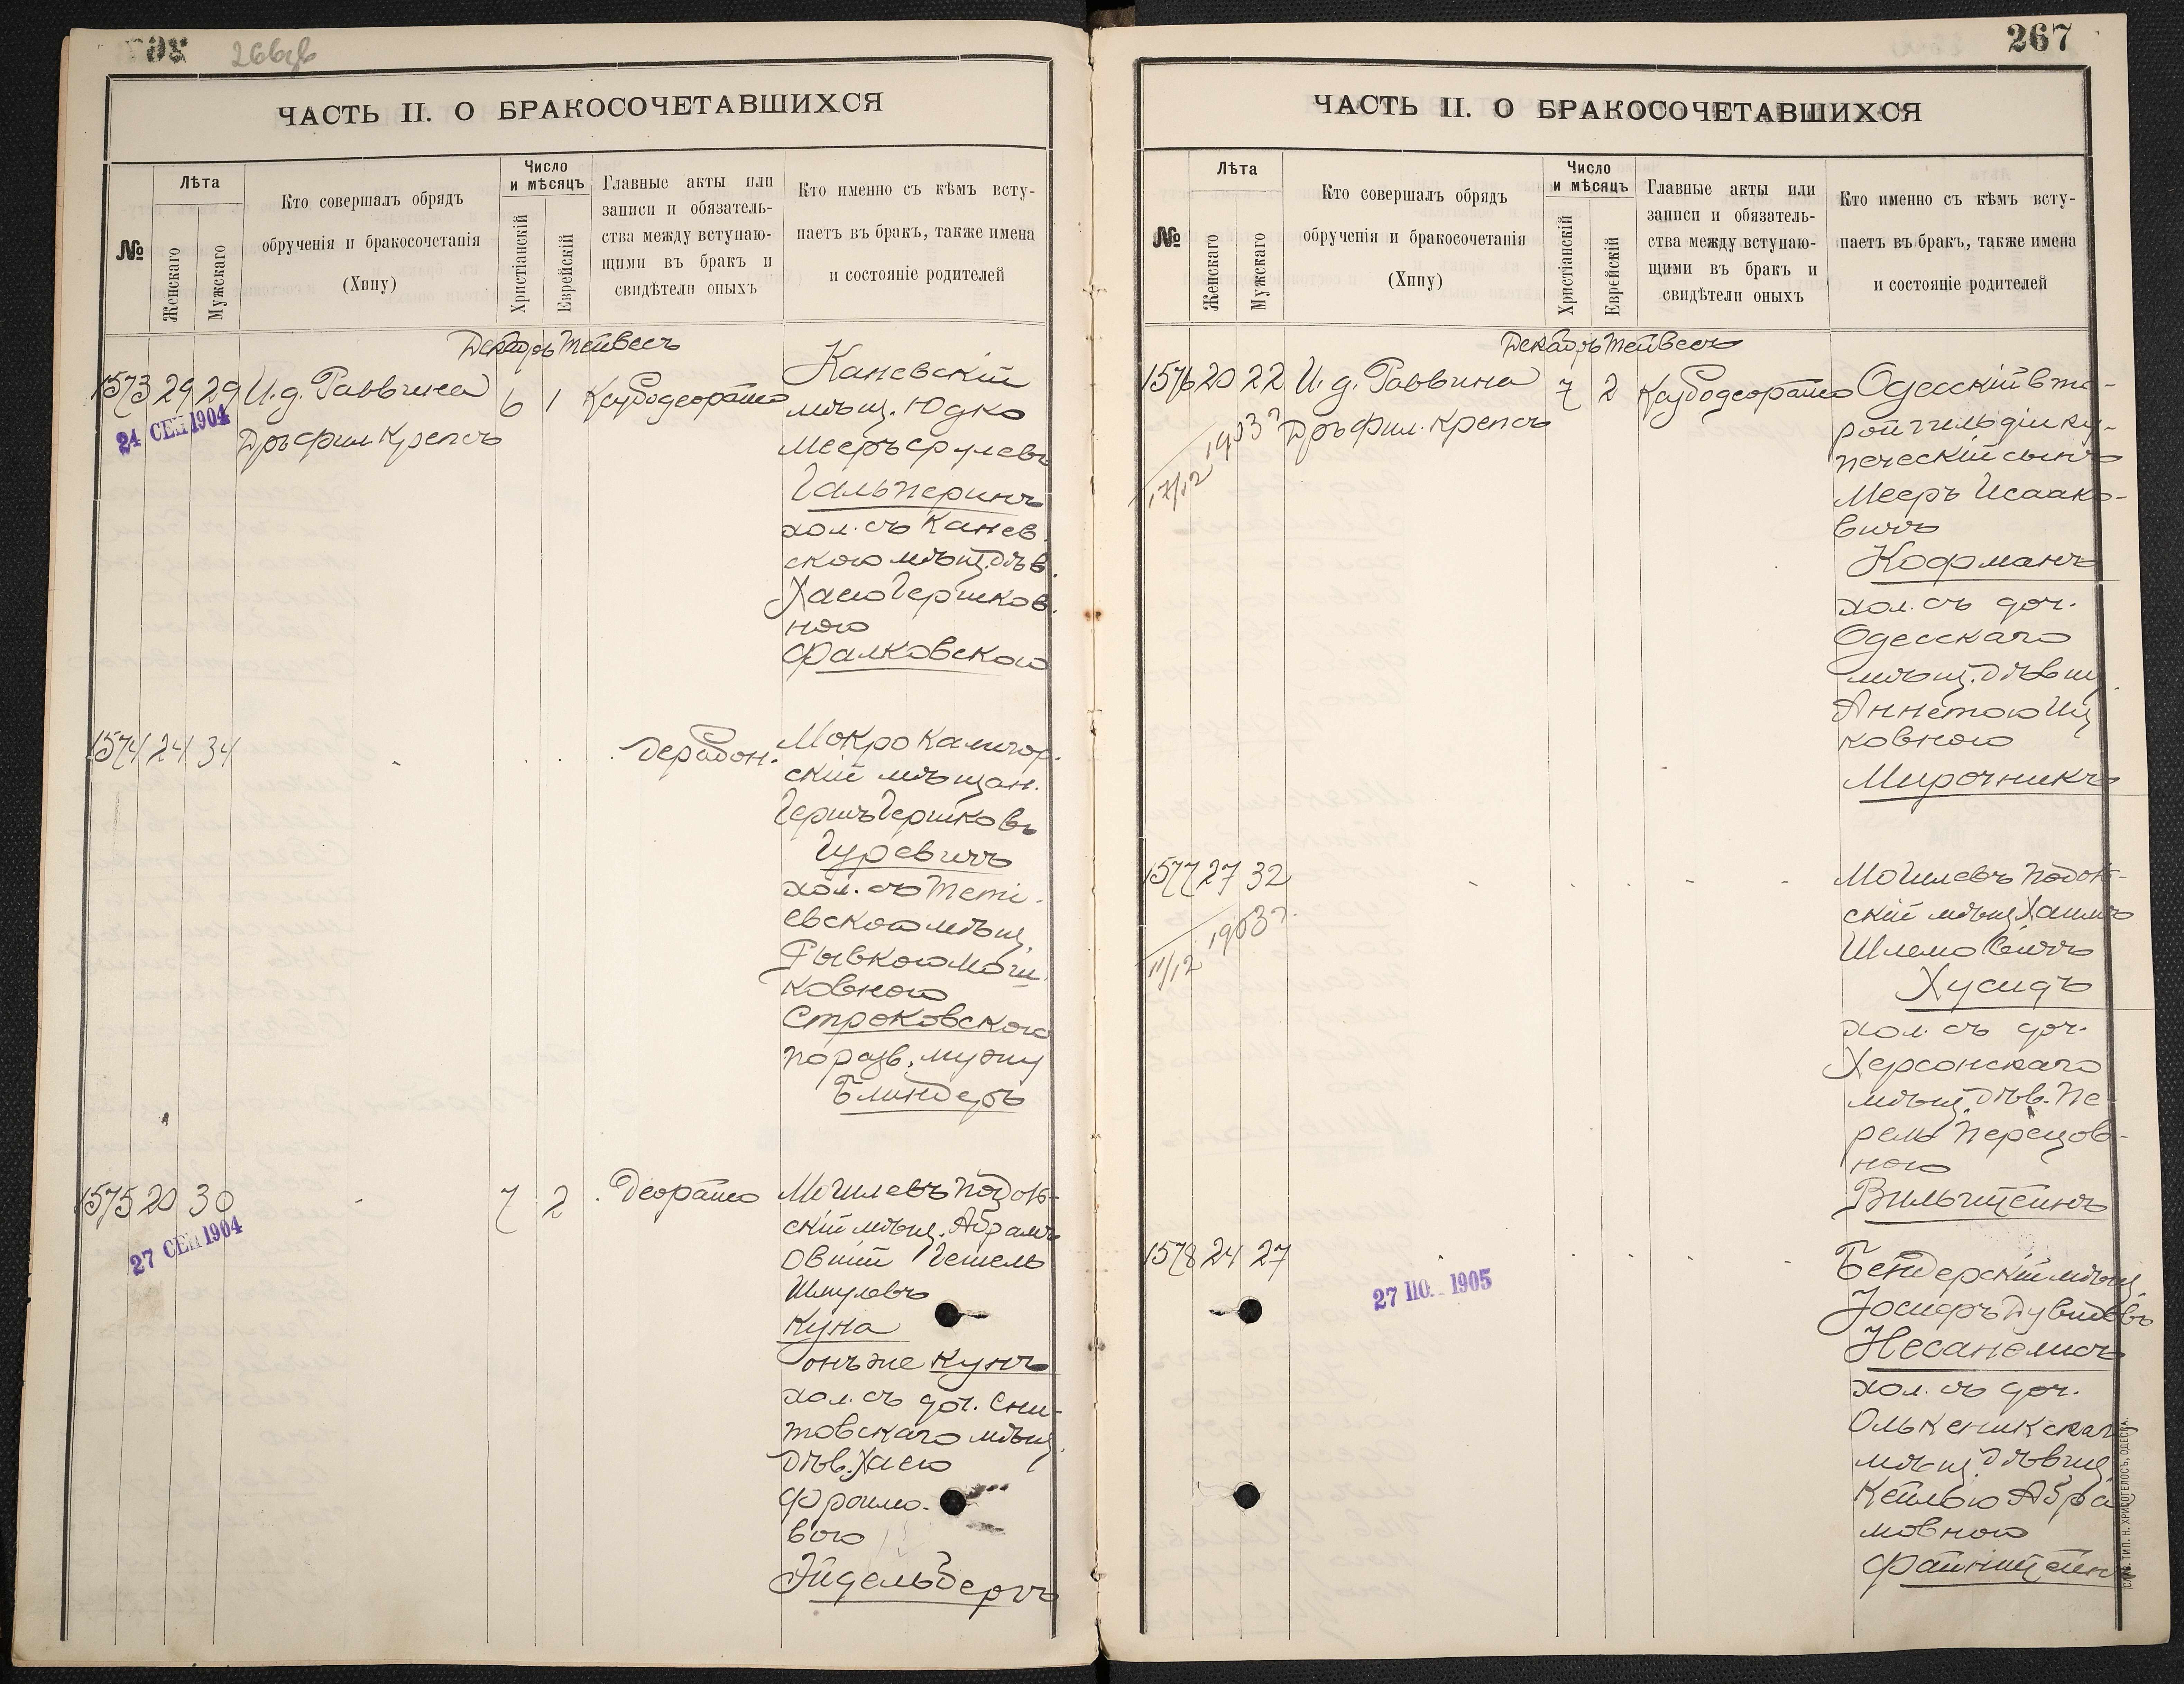 266об
ЧАСТЬ II. О БРАКОСОЧЕТАВШИХСЯ
№
Лѣта
Женскаго
Мужскаго
Кто совершалъ обрядъ
обрученія и бракосочетанія
(Хипу)
Число
и мѣсяцъ
Христіанскій
Еврейскій
Главные акты или
записи и обязатель-
ства между вступаю-
щими въ бракъ и
свидѣтели оныхъ
Кто именно съ кѣмъ всту-
паетъ въ бракъ, также имена
и состояніе родителей
Декабрь Тейвесъ
1573 29 29 И. д. Раввина 6 1
24 СЕН 1904
Дръ фил. Крепсъ
Каневскій
мѣщ. Юдко
Мееръ Срулевъ
Гальперинъ
хол. съ Канев.
скою мѣщ. дѣв.
Хасею Гершков.
ною
Фалковскою
1574 24 34
Мокро Калигор.
скій мѣщан.
Гершъ Гершковъ
Гуревичъ
хол. съ Теті-
евскою мѣщ.
Рывкою Мош.
ковною
Строковскою
по разв. мужу
Блиндеръ
1575 20 30 7 2 Деорайсо
27 СЕН 1904
Могилевъ Подол-
скій мѣщ. Абрамъ
Овшій Гешель
Шмулевъ
Куна
онъ же Кунъ
хол. съ доч. Сни-
товскаго мѣщ.
дѣв. Хаею
Фроимо-
вою
Эйдельбергъ
267
ЧАСТЬ II. О БРАКОСОЧЕТАВШИХСЯ
№
Лѣта
Женскаго
Мужскаго
Кто совершалъ обрядъ
обрученія и бракосочетанія
(Хипу)
Число
и мѣсяцъ
Христіанскій
Еврейскій
Главные акты или
записи и обязатель-
ства между вступаю-
щими въ бракъ и
свидѣтели оныхъ
Кто именно съ кѣмъ всту-
паетъ въ бракъ, также имена
и состояніе родителей
Декабрь Тейвесъ
1576 20 22 И. д. Раввина 7 2
17/12 1903 г.
Дръ фил. Крепсъ
Одесскій вто-
рой гильдіи ку-
печескій сынъ
Мееръ Исаако-
вичъ
Кофманъ
хол. съ доч.
Одесскаго
мѣщ. дѣвиц.
Аннетою Иц
ковною
Мирочникъ
1577 27 32
11/12 1903 г.
Могилевъ Подол-
скій мѣщ. Хаимъ
Шлемовичъ
Хусидъ
хол. съ доч.
Херсонскаго
мѣщ. дѣв. Пе
рель Перецов-
ною
Вильштейнъ
1578 24 27
1905
Бендерскій мѣщ.
Іосифъ Дувидовъ
Несанелисъ
хол. съ доч.
Олькеникскаго
мѣщ. дѣвиц.
Кейлею Абра
мовною
Файнштейнъ